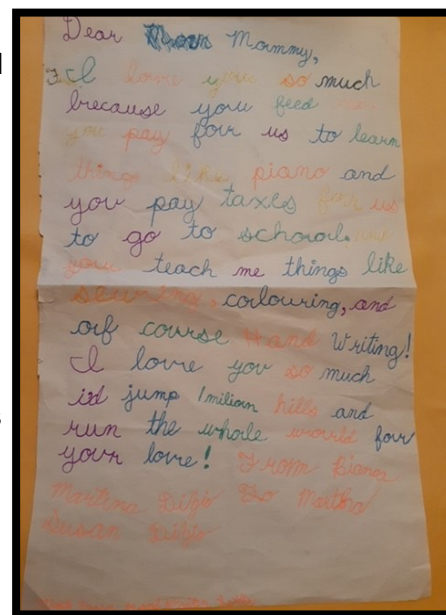 Dear Mommy,
I love you so much
because you feed
you pay four us to learn
things like piano and
you pay taxes for us
to go to school. and
you teach me things like
colouring, and
off course Hand Writing!
I love you so much
i'd jump 1 miliion hills and
run the whole world four
your love! From Bianca
Martina To Martha
Susan